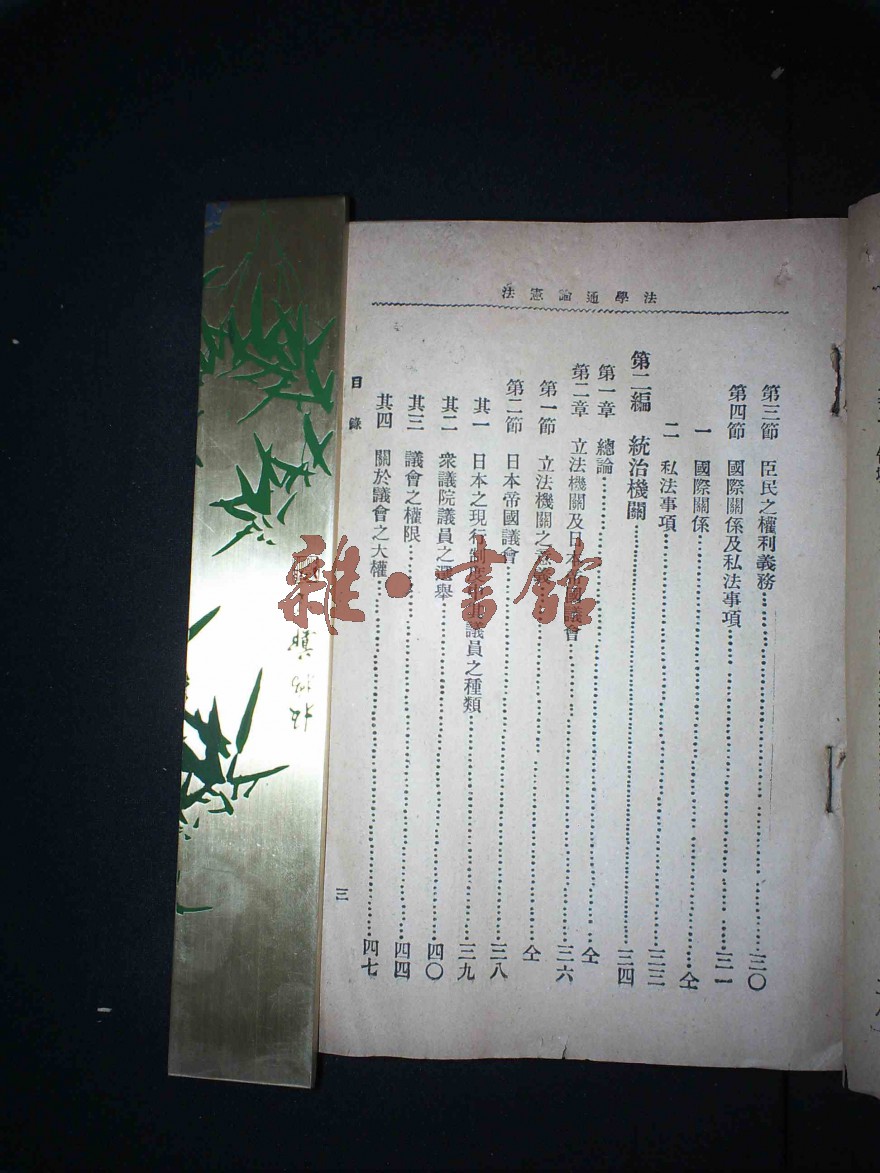 法學通論憲法
第三節　臣民之權利義務……三〇
第四節　國際關係及私法事項……三一
一　國際關係……仝
二　私法事項……三三
第二編　統治機關……三四
第一章　總論……仝
第二章　立法機關及日本帝國議會……三六
第一節　立法機關之意義……仝
第二節　日本帝國議會……三八
其一　日本之現行制度中其議員之種類……三九
其二　衆議院議員之選舉……四〇
其三　議會之權限……四四
其四　關於議會之大權……四七
目錄
三
雜·書館